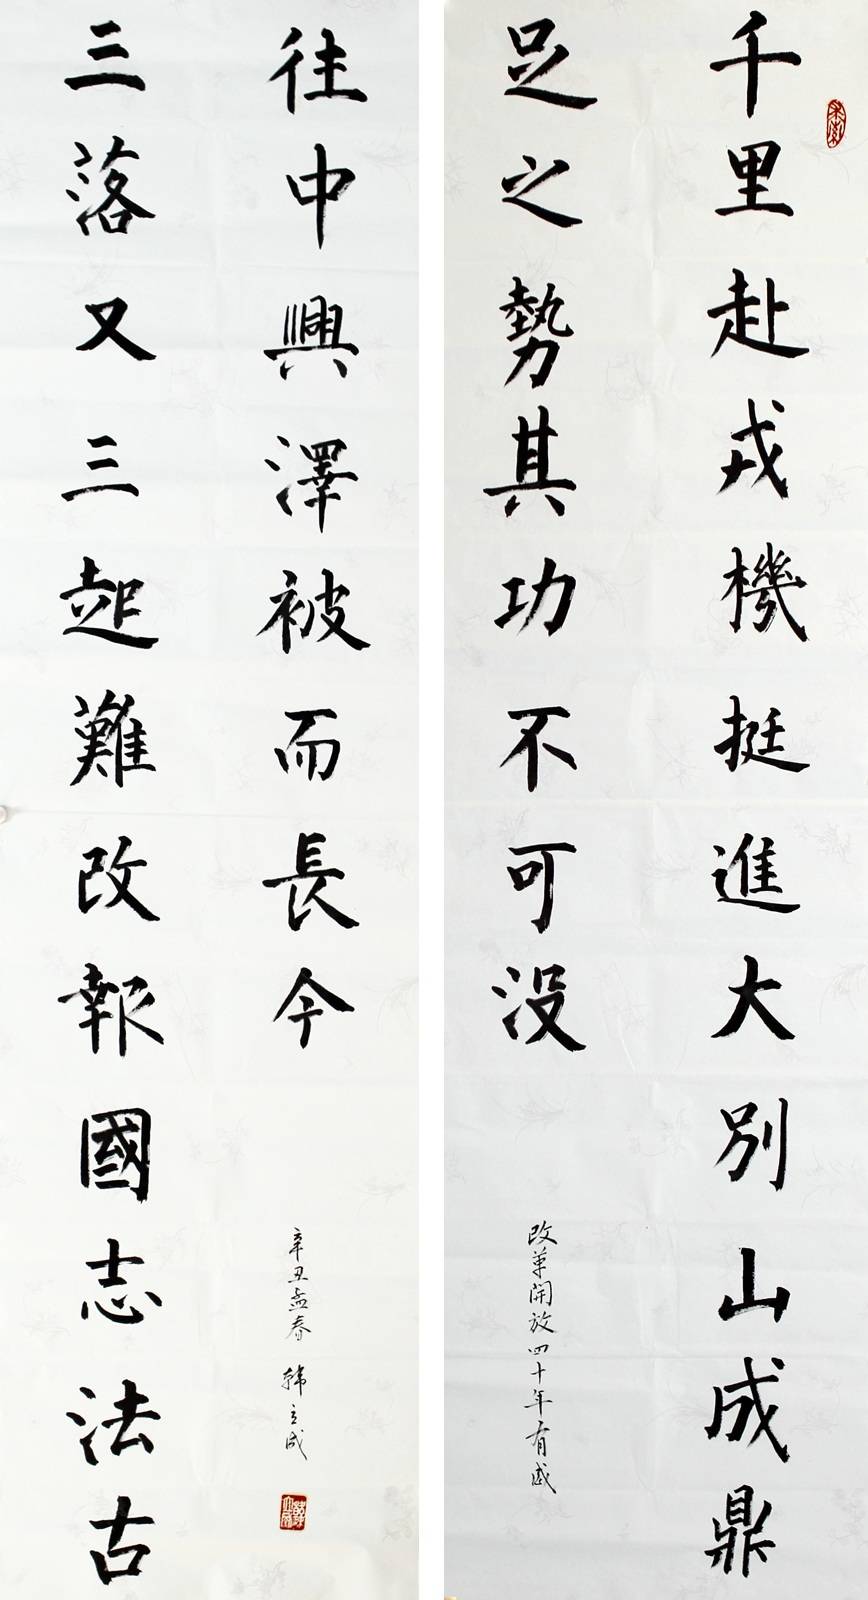 千里赴戎機挺進大別山成鼎
足之勢其功不可没
改革開放四十年有感
三落又三起難改報國志法古
往中興澤被而長今
辛丑孟春 韓立成